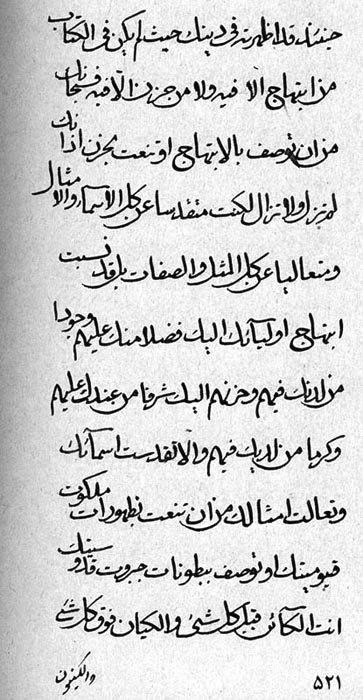 حینئذ قد اظهرته فی دینك حیث لم یكن فی الكتاب
من ابتهاج الا فیه ولا من حزن الا فیه فسبحانك
من ان توصف بالابتهاج او تنعت بحزن اذ انك
لم تزل ولا تزال لكنت متقدسا عن كل الاسماء والامثال
ومتعالیا عن كل المثل والصفات بل قد نسبت
ابتهاج اولیائك الیك فضلا منك علیهم وجودا
من لدنك فیهم وحزنهم الیك شرفا من عندك علیهم
وكرما من لدیك فیهم والا تقدست اسمائك
وتعالت امثالك من ان تنعت بظهورات ملكوت
قیومیتك او توصف ببطونات جبروت قدوسیتك
انت الكائن قبل كل شیئ والكیان فوق كل شیئ
والكینون
۵۲۱